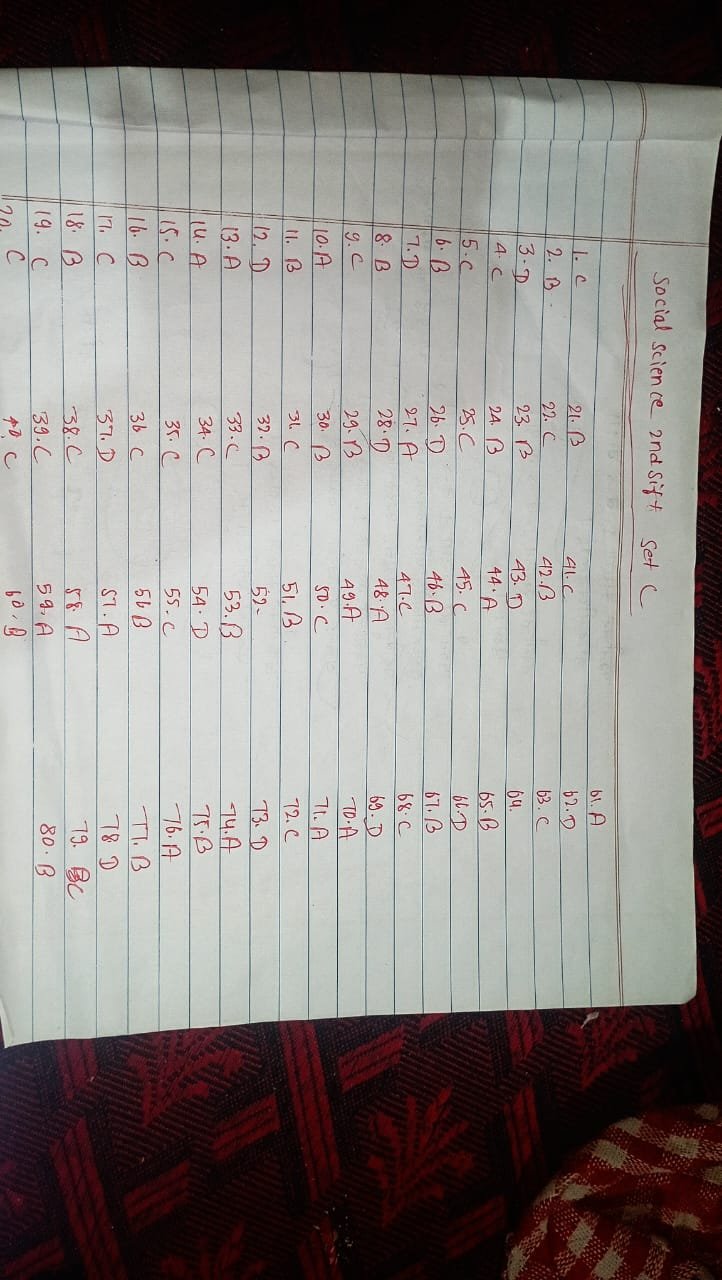 Social Science 2nd Sift Set C
61. A
1. C 21. B 41. C 62. D
2. B. 22. C 42. B 63. C
3. D 23. B 43. D 64.
4. C 24. B 44. A 65. B
5. C 25. C 45. C 66. D
6. B 26. D 46. B 67. B
7. D 27. A 47. C 68. C
8. B 28. D 48. A 69. D
9. C 29. B 49. A 70. A
10. A 30. B 50. C 71. A
11. B 31. C 51. B 72. C
12. D 32. B 52. 73. D
13. A 33. C 53. B 74. A
14. A 34. C 54. D 75. B
15. C 35. C 55. C 76. A
16. B 36 C 56 B 77. B
17. C 37. D 57. A 78 D
18. B 38. C 58. A 79. C
19. C 39. C 59. A 80. B
20. C 40. C 60. B